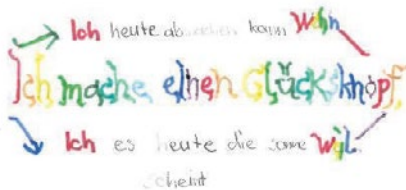 Ich heute kann Wenn
Ich mache einen Glücksknopf,
Ich es heute die sonne Weil
scheint